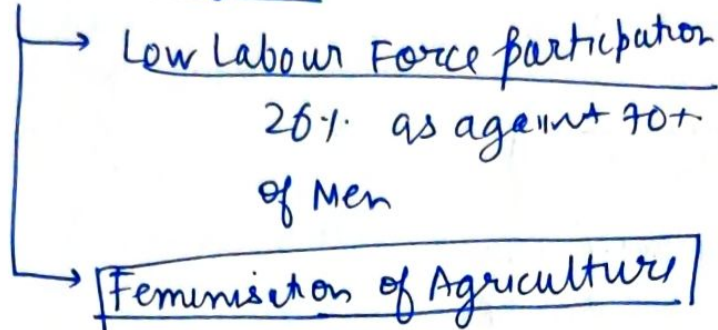 Low Labour Force participation
26% as against 70+
of Men
Feminisation of Agriculture